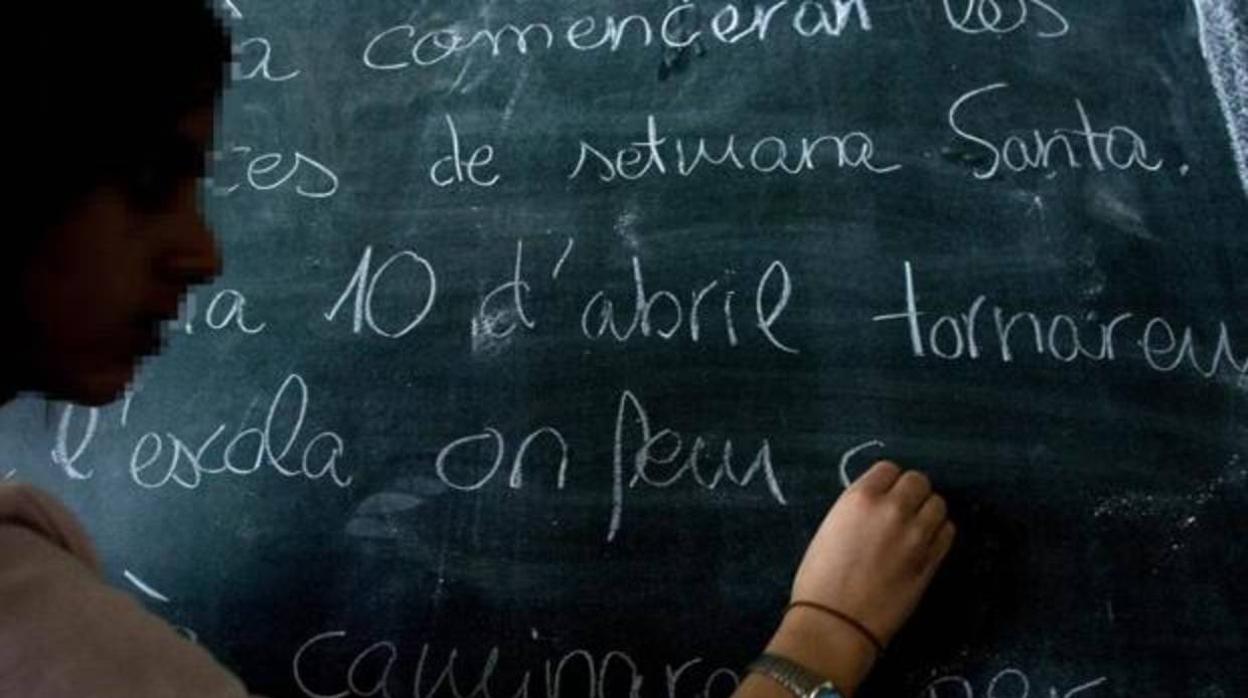 a començeran les
ces de setmana Santa.
ia 10 d'abril tornareu
l'escola on feu
caminar per